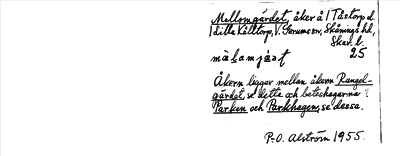 Mellomgärdet, åker å 1 Tåstorp d.
1 Lilla Killtorp, V. Gerums sn, Skånings hd,
Skar. l.
25
Åkern ligger mellan åkern Rangel-
gärdet, se detta och beteshagarna
Parken och Parkhagen, se dessa.
P.O. Alström 1955.